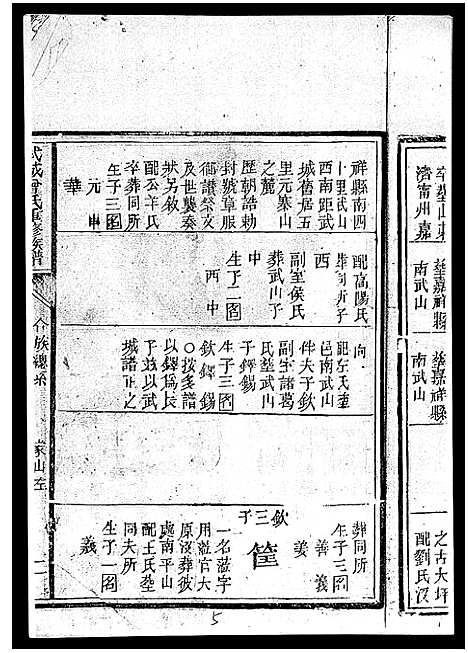 卒葬山東
濟甯州嘉
葬嘉祥縣
南武山
葬嘉祥縣
南武山
之古大坪
配劉氏沒
祥縣南四
十里武山
西南距武
城舊居五
里元寨山
之麓
歷朝誥勅
封號章服
御讚祭文
及世襲奏
狀另敘
配公羊氏
卒葬同所
生子三圖
元 申
華
配高陽氏
葬同所子
西
副室侯氏
葬武山子
申
生子二圖
西 申
向
配左氏葬
邑南武山
件夫子欽
副室諸葛
氏葬武山
子鐸錫
生子三圖
欽 鐸 錫
〇按多譜
以鐸爲長
子兹以武
城譜正之
葬同所
生子三圖
善 義
姜
欽三子
筐
一名蓝字
用蓝官大
原沒葬彼
處南平山
配王氏葬
同夫所
生子一圖
義
武城曾氏重修族譜
合族總系
萊山㽵
二
5